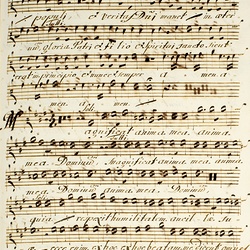 populi, et veritas Dni manet in æter
num, gloria Patri et Filio et Spiritui Sancto. Sicut
erat in principio et nunc et semper a men a
men a men.
agnificat anima mea anima
mea Dominum. Magnificat anima mea, anima
mea Dominum anima mea Dominum,
quia respexit humilitatem ancil læ Su
æ ecce enim ex hoc ex hoc beatam me dicent omnes